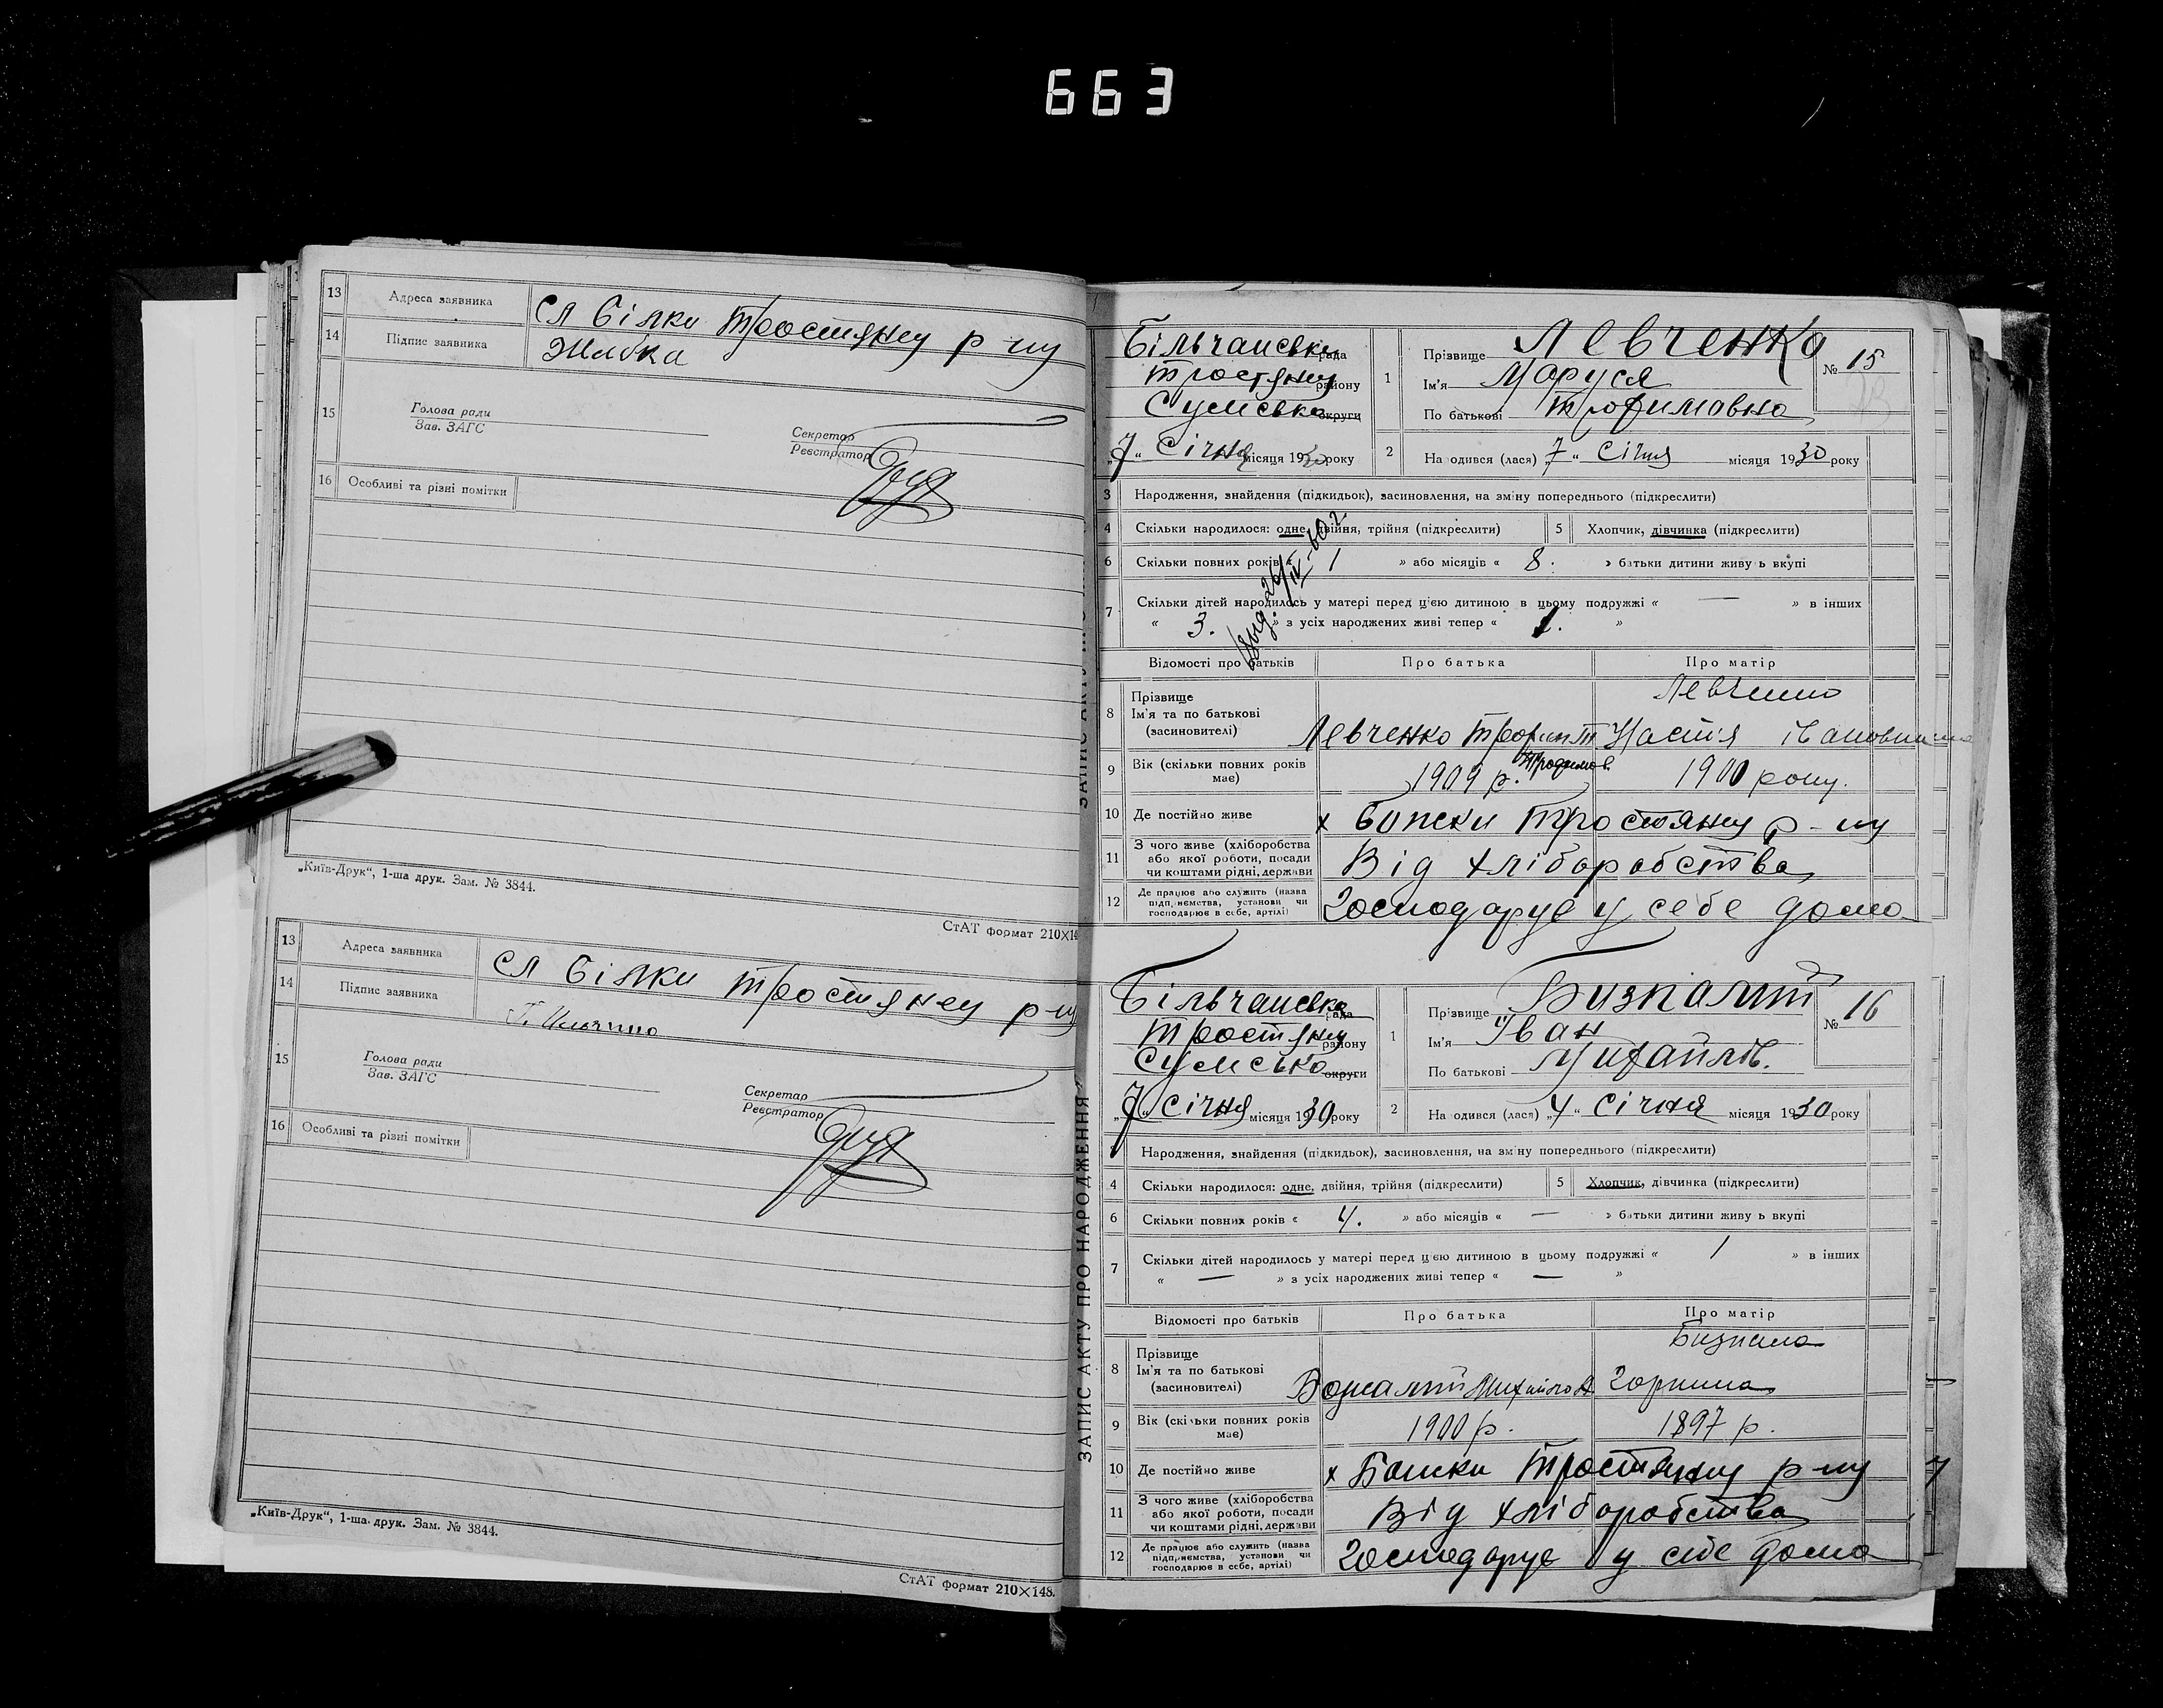 663
13 Адреса заявника сл Білки Тростянец р-ну
14 Підпис заявника
15 Голова ради
Зав. ЗАГС
Секретар
Реєстратор
16 Особливі та різні помітки
„Київ-Друк“, 1-ша друк. Зам. № 3844.
СтАТ формат 210×14
13 Адреса заявника сл Білки Тростянец р-ну
14 Підпис заявника
15 Голова ради
Зав. ЗАГС
Секретар
Реєстратор
16 Особливі та різні помітки
„Київ-Друк“, 1-ша друк. Зам. № 3844.
СтАТ формат 210×148.
ЗАПИС АКТУ ПРО НАРОДЖЕННЯ
Більчанська рада
Тростянец району
Сумська округи
„7“ Січня місяця 1930 року
1 Прізвище Левченко № 15
Ім'я Маруся
По батькові Трофимовна
2 На одився (лася) „7“ Січня місяця 1930 року
3 Народження, знайдення (підкидьок), засиновлення, на зміну попереднього (підкреслити)
4 Скільки народилося: одне, двійня, трійня (підкреслити) 5 Хлопчик, дівчинка (підкреслити)
6 Скільки повних років « 1 » або місяців « 8. » батьки дитини живу ь вкупі
7 Скільки дітей народилось у матері перед цією дитиною в цьому подружжі « — » в інших
« 3. » з усіх народжених живі тепер « 1. »
Відомості про батьків Про батька Про матір
8 Прізвище
Ім'я та по батькові
(засиновителі) Левченко Трофим Настя Івановна
9 Вік (скільки повних років має) 1909 р. 1900 року.
10 Де постійно живе х Тростянец р-ну
11 З чого живе (хліборобства або якої роботи, посади чи коштами рідні, держави Від хліборобства
12 Де працює або служить (назва підприємства, установи чи господарює в себе, артілі) Господарує у себе дома
Більчанська рада
Тростянец району
Сумська округи
„7“ Січня місяця 1930 року
1 Прізвище № 16
Ім'я Іван
По батькові Михайлів.
2 На одився (лася) „4“ Січня місяця 1930 року
Народження, знайдення (підкидьок), засиновлення, на зміну попереднього (підкреслити)
4 Скільки народилося: одне, двійня, трійня (підкреслити) 5 Хлопчик, дівчинка (підкреслити)
6 Скільки повних років « 4. » або місяців « — » батьки дитини живу ь вкупі
7 Скільки дітей народилось у матері перед цією дитиною в цьому подружжі « 1 » в інших
« — » з усіх народжених живі тепер « — »
Відомості про батьків Про батька Про матір
8 Прізвище
Ім'я та по батькові
(засиновителі)
9 Вік (скільки повних років має) 1900 р. 1897 р.
10 Де постійно живе х Тростянец р-ну
11 З чого живе (хліборобства або якої роботи, посади чи коштами рідні, держави Від хліборобства
12 Де працює або служить (назва підприємства, установи чи господарює в себе, артілі) Господарує у себе дома